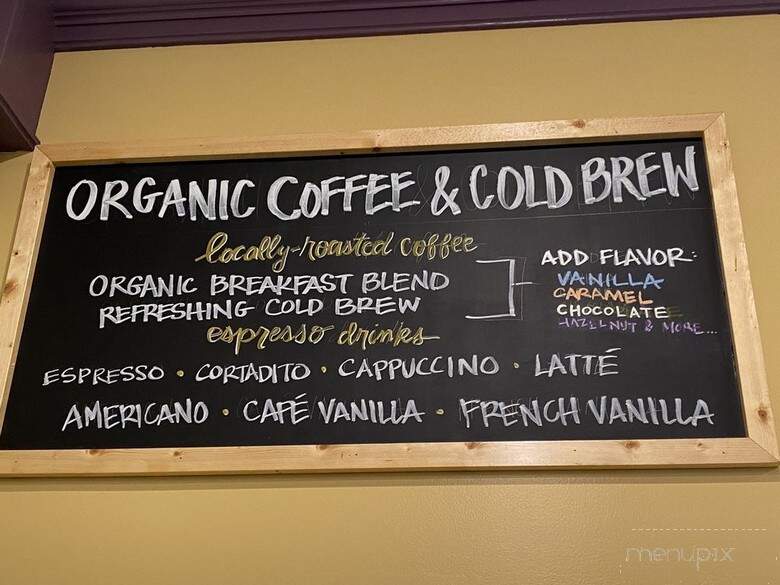 ORGANIC COFFEE & COLD BREW
locally-roasted coffee
ORGANIC BREAKFAST BLEND
REFRESHING COLD BREW
ADD FLAVOR:
VANILLA
CARAMEL
CHOCOLATE
HAZELNUT & MORE...
espresso drinks
ESPRESSO • CORTADITO • CAPPUCCINO • LATTÉ
AMERICANO • CAFÉ VANILLA • FRENCH VANILLA
menupix